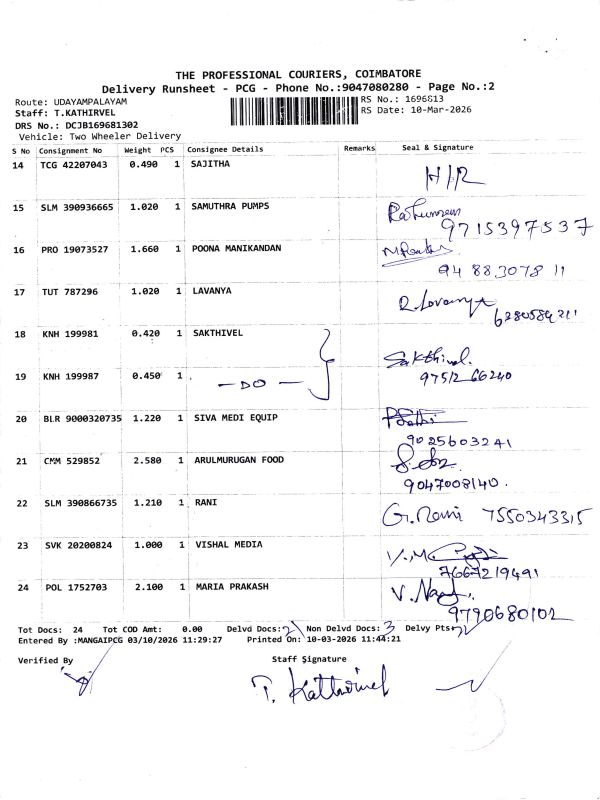 THE PROFESSIONAL COURIERS, COIMBATORE
Delivery Runsheet - PCG - Phone No.:9047080280 - Page No.:2
Route: UDAYAMPALAYAM RS No.: 1696813
Staff: T.KATHIRVEL RS Date: 10-Mar-2026
DRS No.: DCJB169681302
Vehicle: Two Wheeler Delivery
S No Consignment No Weight PCS Consignee Details Remarks Seal & Signature
14 TCG 42207043 0.490 1 SAJITHA H/R
15 SLM 390936665 1.020 1 SAMUTHRA PUMPS
9715397537
16 PRO 19073527 1.660 1 POONA MANIKANDAN
9488307811
17 TUT 787296 1.020 1 LAVANYA R.Lavanya
6280584211
18 KNH 199981 0.420 1 SAKTHIVEL
Sakthivel.
19 KNH 199987 0.450 1 —DO— 9751266240
20 BLR 9000320735 1.220 1 SIVA MEDI EQUIP
9025603241
21 CMM 529852 2.580 1 ARULMURUGAN FOOD
9047008140.
22 SLM 390866735 1.210 1 RANI G.Rani 7550343315
23 SVK 20200824 1.000 1 VISHAL MEDIA
7667219491
24 POL 1752703 2.100 1 MARIA PRAKASH
9790680102
Tot Docs: 24 Tot COD Amt: 0.00 Delvd Docs: Non Delvd Docs: 3 Delvy Pts:
Entered By :MANGAIPCG 03/10/2026 11:29:27 Printed On: 10-03-2026 11:44:21
Verified By Staff Signature
T. Kathirvel